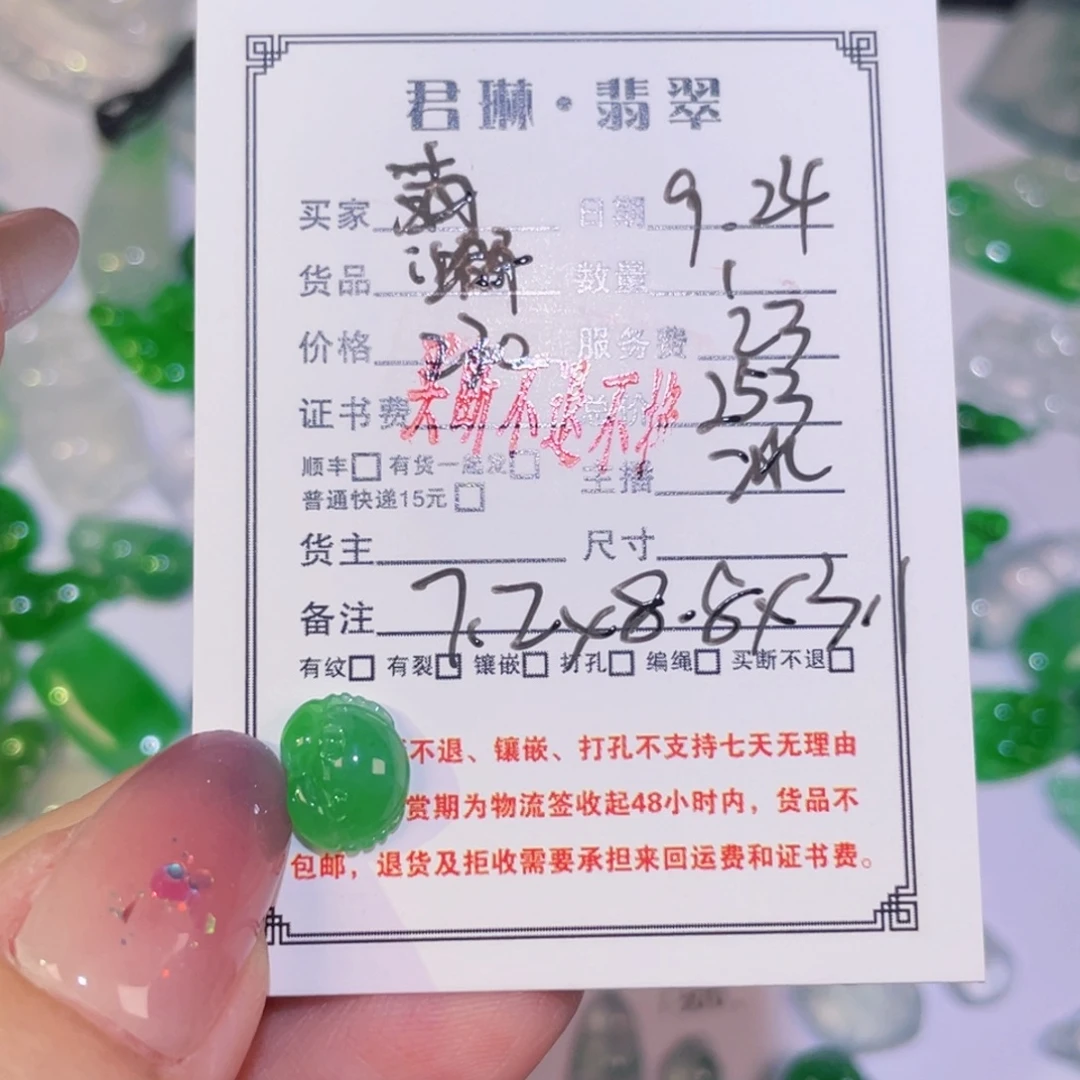 君琳·翡翠
买家 日期 9.24
货品 数量 1
价格 230 服务费 23
证书费 总价 253
买断不退不换
顺丰□ 有货一起发□ 主播 冰
普通快递15元□
货主 尺寸
备注 7.2×8.8×3.1
有纹□ 有裂□ 镶嵌□ 打孔□ 编绳□ 买断不退□
不退、镶嵌、打孔不支持七天无理由
赏期为物流签收起48小时内，货品不
包邮，退货及拒收需要承担来回运费和证书费。